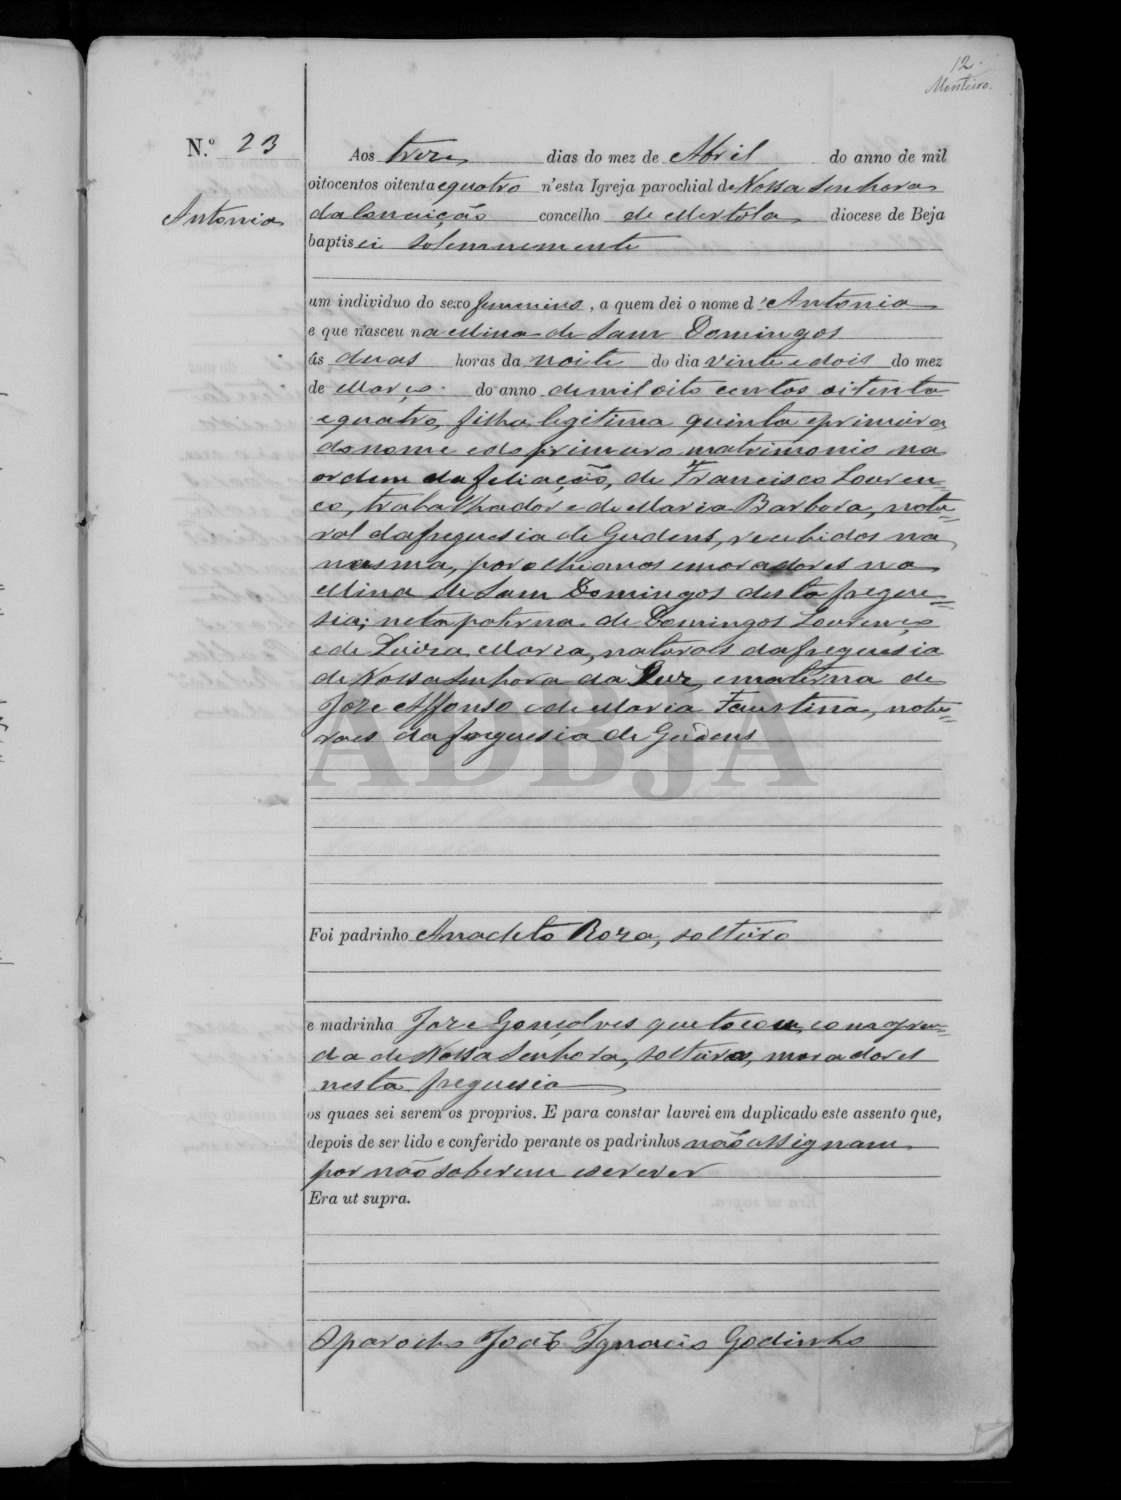 12.
Monteiro.
N.º 23
Aos treze dias do mez de Abril do anno de mil
oitocentos oitenta e quatro n'esta Igreja parochial de Nossa Senhora
da Conceição concelho de Mertola, diocese de Beja
baptisei solemnemente
Antonia
um individuo do sexo femenino, a quem dei o nome d'Antonia
e que nasceu na Mina de Sam Domingos
ás duas horas da noite do dia vinte e dois do mez
de Março do anno de mil oito centos oitenta
e quatro, filha legitima quinta e primeira
do nome e do primeiro matrimonio na
ordem da filiação, de Francisco Louren-
ço, trabalhador e de Maria Barbora, natu=
ral da freguesia de Gudens, recebidos na
mesma, parochianos e moradores na
Mina de Sam Domingos desta fregue=
sia; neta paterna de Domingos Lourenço
e de Luiza Maria, naturaes da freguesia
de Nossa Senhora da Luz, e materna de
Joze Affonso e de Maria Faustina, natu=
raes da freguesia de Gudens
ADBJA
Foi padrinho Anacleto Roza, solteiro
e madrinha Joze Gonçalves que tocou, com a pren=
da de Nossa Senhora, solteiros, moradores
nesta freguesia
os quaes sei serem os proprios. E para constar lavrei em duplicado este assento que,
depois de ser lido e conferido perante os padrinhos não assignam
por não saberem escrever
Era ut supra.
O parocho João Ignacio Godinho